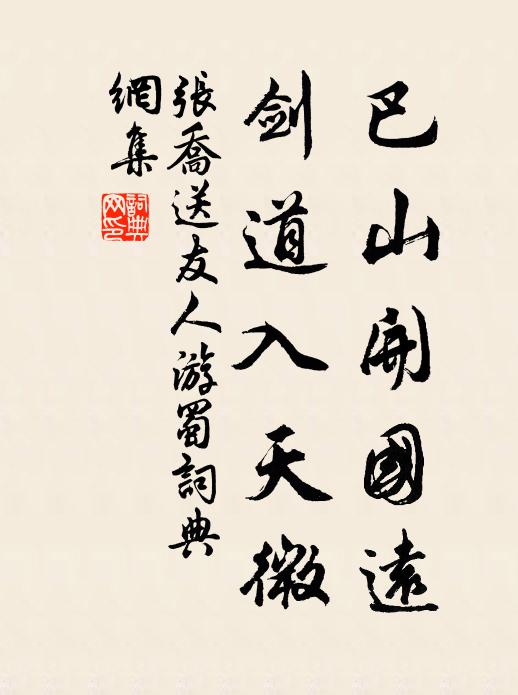 巴山開國遠
劍道入天微
張喬送友人游蜀詞典
網集
詞典
网印